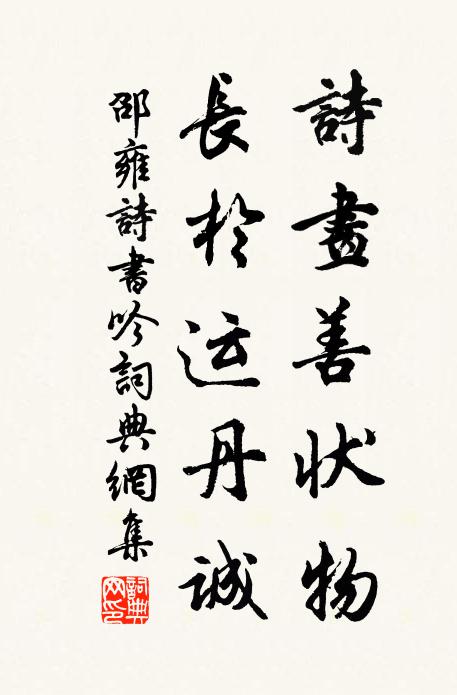 詩畫善狀物
長於运丹誠
邵雍詩書吟詞典網集
詞典
网印